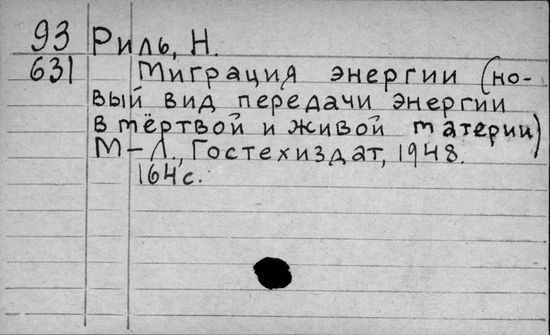 93 Риль, Н.
631 Миграция энергии (но-
вый вид передачи энергии
в мёртвой и живой материи)
М-Л., Гостехиздат, 1948.
164 с.